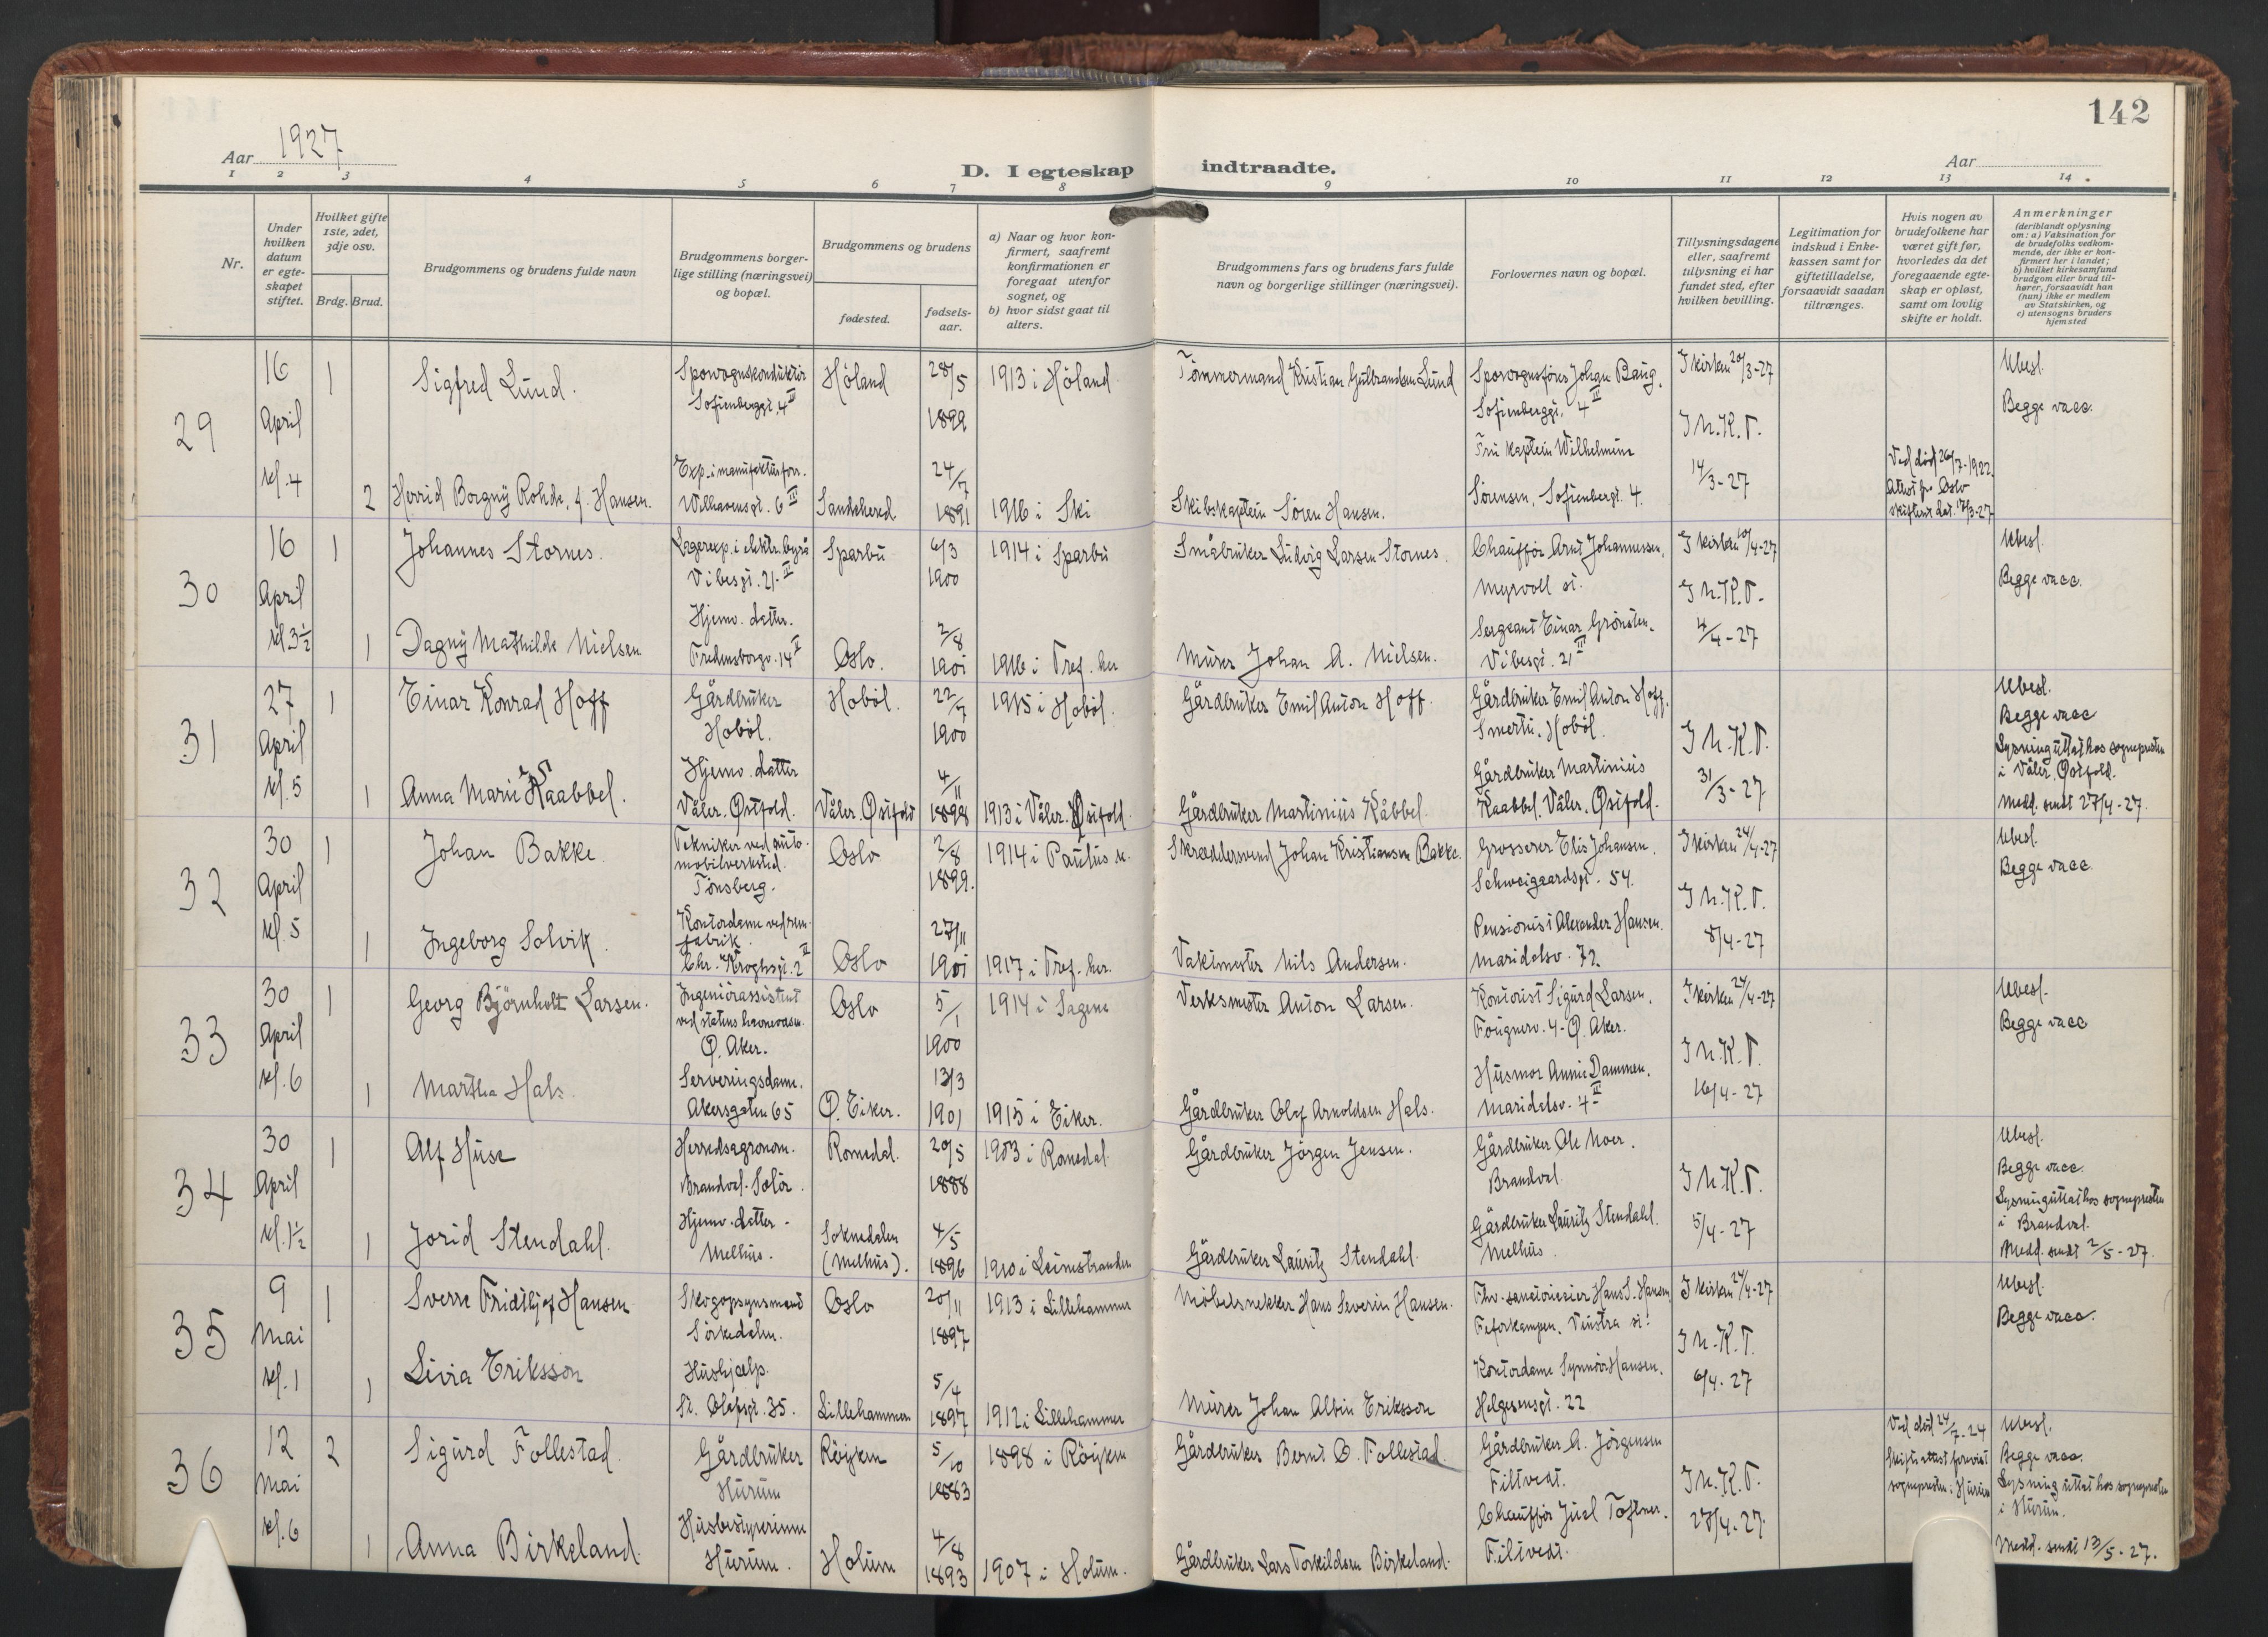 142
Aar 1927
D. I egteskap indtraadte.
Aar
1 2 3 4 5 6 7 8 9 10 11 12 13 14
Nr.
Under hvilken datum er egteskapet stiftet.
Hvilket gifte 1ste, 2det, 3dje osv.
Brdg. Brud.
Brudgommens og brudens fulde navn
Brudgommens borgerlige stilling (næringsvei) og bopæl.
Brudgommens og brudens
fødested.
fødselsaar.
a) Naar og hvor konfirmert, saafremt konfirmationen er foregaat utenfor sognet, og
b) hvor sidst gaat til alters.
Brudgommens fars og brudens fars fulde navn og borgerlige stillinger (næringsvei).
Forlovernes navn og bopæl.
Tillysningsdagene eller, saafremt tillysning ei har fundet sted, efter hvilken bevilling.
Legitimation for indskud i Enkekassen samt for giftetilladelse, forsaavidt saadan tiltrænges.
Hvis nogen av brudefolkene har været gift før, hvorledes da det foregaaende egteskap er opløst, samt om lovlig skifte er holdt.
Anmerkninger (deriblandt oplysning om: a) Vaksination for de brudefolks vedkommende, der ikke er konfirmert her i landet; b) hvilket kirkesamfund brudgom eller brud tilhører, forsaavidt han (hun) ikke er medlem av Statskirken, og c) utensogns bruders hjemsted
29
16 April kl. 4
1 Sigfred Lund. Sporvognskonduktör Sofienberggt. 4 III Höland 28/5 1899 1913 i Höland Tömmermand Kristian Gulbrandsen Lund Sporvognsförer Johan Baug, Sofienberggt. 4 II I kirken 20/3-27 Ubesl. Begge vacc.
2 Herrid Borgny Rohde, f. Hansen. Exp. i manufakturforr. Welhavensgt. 6 III Sandeherred 24/7 1891 1916 i Ski Skibskaptein Sören Hansen. Fru kaptein Wilhelmine Sörensen, Sofienbergt. 4. I N.K.T. 14/3-27 Ved död 26/7-1922. Attest fra Oslo skifteret dat. 17/3-27
30
16 April kl. 3½
1 Johannes Stornes. Lagerexp. i elektr. byrå Vibesgt. 21 III Sparbu 6/3 1900 1914 i Sparbu Småbruker Ludvig Larsen Stornes. Chaufför Arnt Johannessen, Myrvoll st. I kirken 10/4-27 Ubesl. Begge vacc.
1 Dagny Mathilde Nielsen Hjemv. datter. Fredensborgv. 14 II Oslo. 2/8 1901 1916 i Tref. her Murer Johan A. Nielsen. Sergeant Einar Grönsten. Vibesgt. 21 III I N.K.T. 4/4-27
31
27 April kl. 5
1 Einar Konrad Hoff Gårdbruker Hoböl. Hoböl. 22/7 1900 1915 i Hoböl. Gårdbruker Emil Anton Hoff. Gårdbruker Emil Anton Hoff. Smertu. Hoböl. I N.K.T. 31/3-27 Ubesl. Begge vacc Lysning uttat hos sogneprsten i Våler, Østfold. Medd. sendt 27/4-27.
1 Anna Marie Kaabbel. Hjemv. datter Våler. Østfold. Våler. Østfold 4/11 1898 1913 i Våler. Østfold. Gårdbruker Martinius Kåbbel. Gårdbruker Martinius Kaabbel. Våler. Østfold.
32
30 April kl. 5
1 Johan Bakke Tekniker ved automobilverksted. Tönsberg. Oslo 2/8 1899. 1914 i Paulus k. Skræddersvend Johan Kristiansen Bakke. Grosserer Elis Johansen. Schweigaardsgt. 54. I kirken 24/4-27 Ubesl. Begge vacc.
1 Ingeborg Solvik. Kontordame ved fabrik. Chr. Kroghsgt. 2 II Oslo 27/11 1901 1917 i Tref. her. Vaktmester Nils Andersen. Pensionist Alexander Hansen. Maridalsv. 72. I N.K.T. 8/4-27
33
30 April kl. 6
1 Georg Björnholt Larsen. Ingeniörassistent ved statens havnevæsen. Ø. Aker. Oslo 5/1 1900 1914 i Sagene Verksmester Anton Larsen. Kontorist Sigurd Larsen. Fougnerv. 4-Ø. Aker. I kirken 24/4-27 Ubesl. Begge vacc
1 Martha Hals. Serveringsdame. Akersgaten 65 Ø. Eiker. 13/3 1901 1915 i Eiker. Gårdbruker Olaf Arnoldsen Hals. Husmor Annie Dammen. Maridalsv. 4 III I N.K.T. 16/4-27
34
30 April kl. 1½
1 Alf Huse Herredsagronom. Brandval. Solör. Romedal. 20/5 1888 1903 i Romedal. Gårdbruker Jörgen Jensen. Gårdbruker Ole Noer. Brandval. I N.K.T. 5/4-27 Ubesl. Begge vacc. Lysning uttat hos sogneprsten i Brandval. Medd. sendt 2/5-27.
1 Jorid Stendahl. Hjemv. datter. Melhus. Soknedalen (Melhus). 4/5 1896 1910 i Leinstranden Gårdbruker Lauritz Stendahl. Gårdbruker Lauritz Stendahl. Melhus.
35
9 Mai kl. 1
1 Sverre Fridthjof Hansen Skogopsynsmand Sörkedalen. Oslo 20/11 1897 1913 i Lillehammer Möbelsnekker Hans Severin Hansen. Fhv. Hans S. Hansen, Feforkampen. Vinstra st. I kirken 24/4-27 Ubesl. Begge vacc.
1 Livia Eriksson Hushjælp. St. Olafsgt. 35. Lillehammer 5/4 1897 1912 i Lillehammer Murer Johan Albin Eriksson Kontordame Synnöv Hansen. Helgesensgt. 22 I N.K.T. 6/4-27
36
12 Mai kl. 6
2 Sigurd Follestad. Gårdbruker Hurum Röyken 5/10 1883 1898 i Röyken Gårdbruker Bernt O. Follestad. Gårdbruker A. Jörgensen Filtvedt. I N.K.T. 27/4-27. Ved död 24/7-24 Skifteattest forevist sogneprsten i Hurum Ubesl. Begge vacc. Lysning uttat hos sogneprsten i Hurum. Medd. sendt 13/5-27.
1 Anna Birkeland. Husbestyrerinne Hurum. Holum 4/8 1893 1907 i Holum. Gårdbruker Lars Torkildsen Birkeland. Chaufför Juel Toftner. Filtvedt.